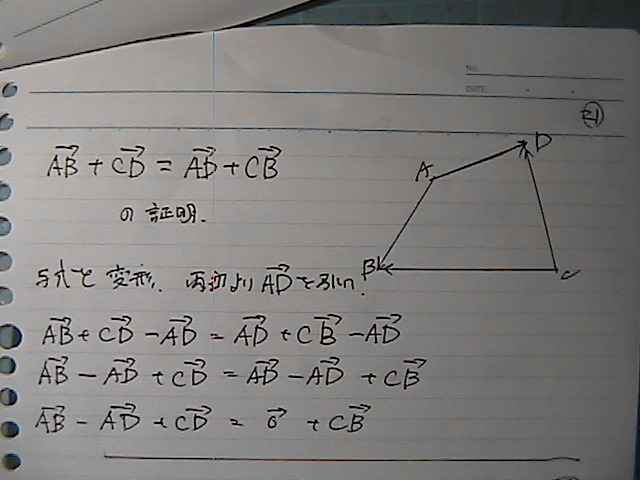 No.
DATE
㉑
AB→ + CD→ = AD→ + CB→
の証明.
A
D
B
C
与式を変形. 両辺より AD→ を引く.
AB→ + CD→ - AD→ = AD→ + CB→ - AD→
AB→ - AD→ + CD→ = AD→ - AD→ + CB→
AB→ - AD→ + CD→ = 0→ + CB→